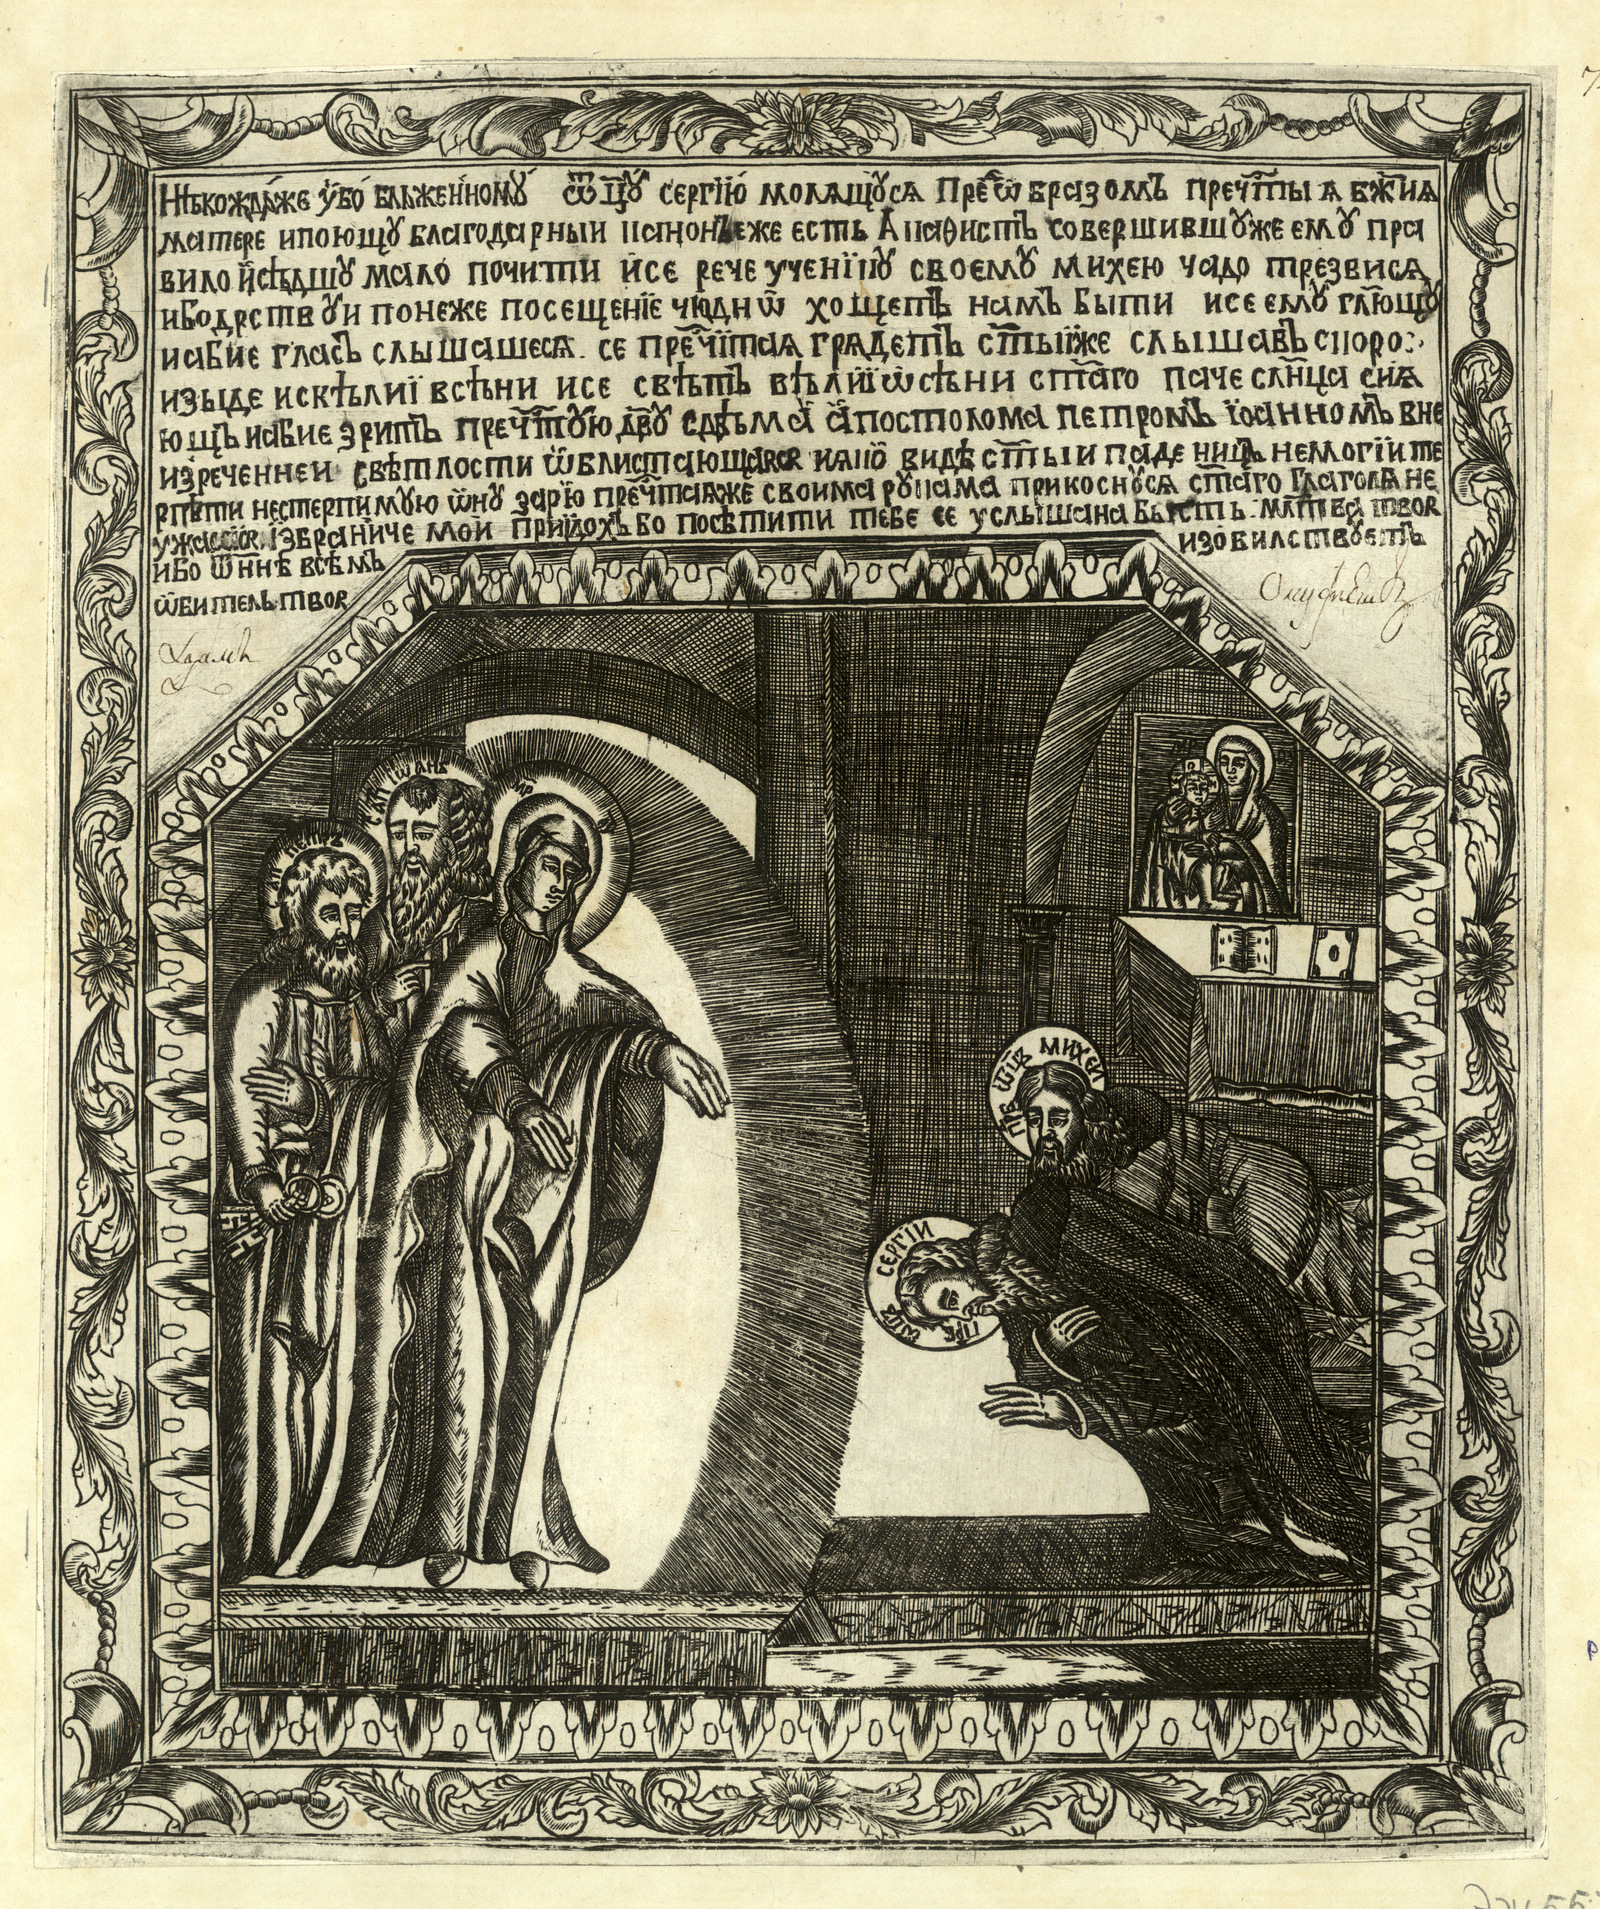 Нѣкождаже ꙋбо блаженномꙋ ѿцꙋ сергїю молящꙋся Пре̾ѡбразомъ преч҃тыꙗ бж҃ия
матере ипоющꙋ благодарныи канонъ еже есть Акаѳистъ совершившꙋже емꙋ пра
вило исѣдшꙋ мало почити исе рече ученїкꙋ своемꙋ михею чадо трезвися
ибодрствꙋи понеже посещенїе чюднѡ хощетъ намъ быти исе емꙋ гл҃ющꙋ
иабие гласъ слышашеся. се преч҃їтая грядетъ с҃тыїже слышавъ скоро
изыде искѣлиї всѣни исе свѣтъ вѣлїй ѡсѣни с҃таго паче слн҃ца сия
ющъ иабие зритъ преч҃тꙋю дв҃ꙋ сдвѣма апостолома петромъ їоанномъ вне
изреченнеи свѣтлости ѿблистающаяся ияко видѣ с҃тыи паде ницъ немогїи те
рпѣти нестерпимꙋю ѡнꙋ зарїю преч҃таяже своима рꙋкама прикоснꙋся с҃таго Глаголя не
ужасаися їзбраниче мои приидохъ бо посѣтити тебе се услышана бысть мл҃тва твоя
ибо ѿннѣ всѣмъ изобилствꙋетъ
ѡбитель твоя
ап҃ іѡанъ
мр҃
ап петръ
мр҃
пр҃е ѡц҃ъ михеи
пр҃е ѡц҃ъ сергїи